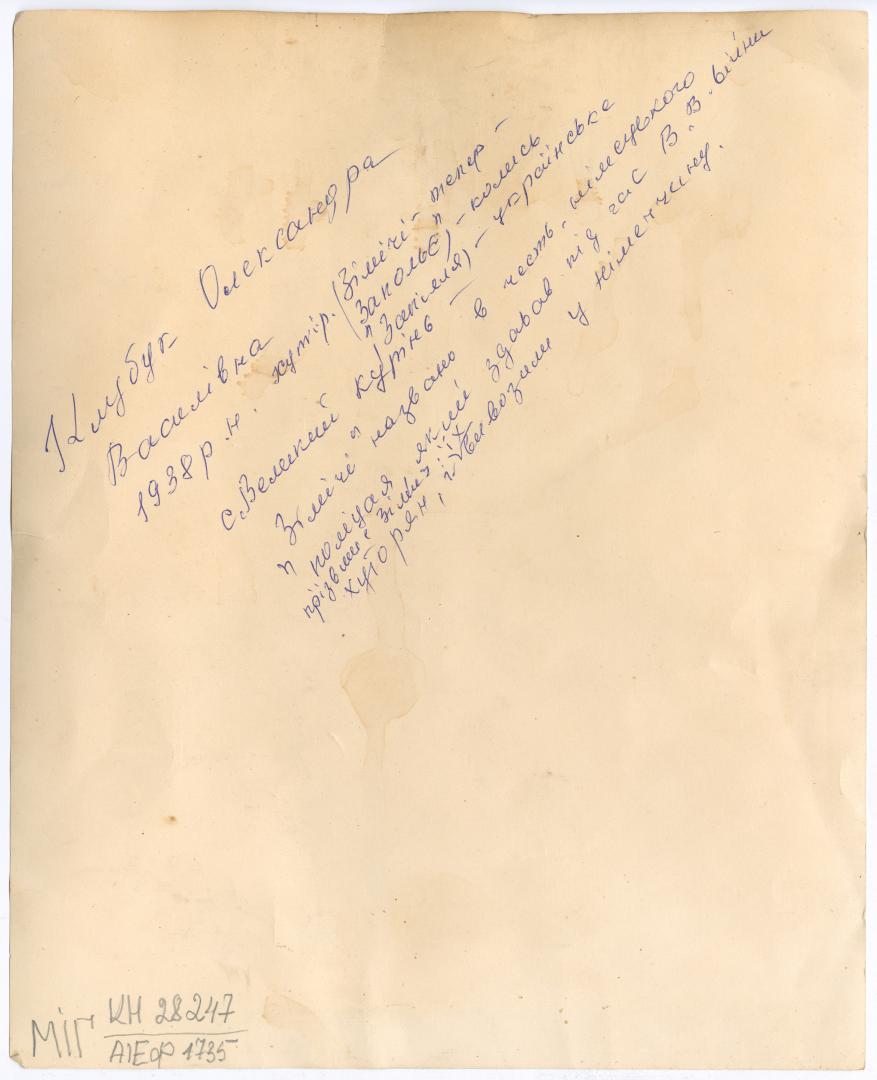 Клубук Олександра
Василівна
1938 р.н. хутір. (Зімічі - тепер -
(Заколье") - колись
("Запілля) - українське
с. Великий Курінь
"Зімічі" названо в честь німецького
поліцая який здавав під час В.В. війни
прізвище Зіміч. їх
хуторян, і вивозили у Німеччину.
МІГ КН 28247
АІЕФ 1735